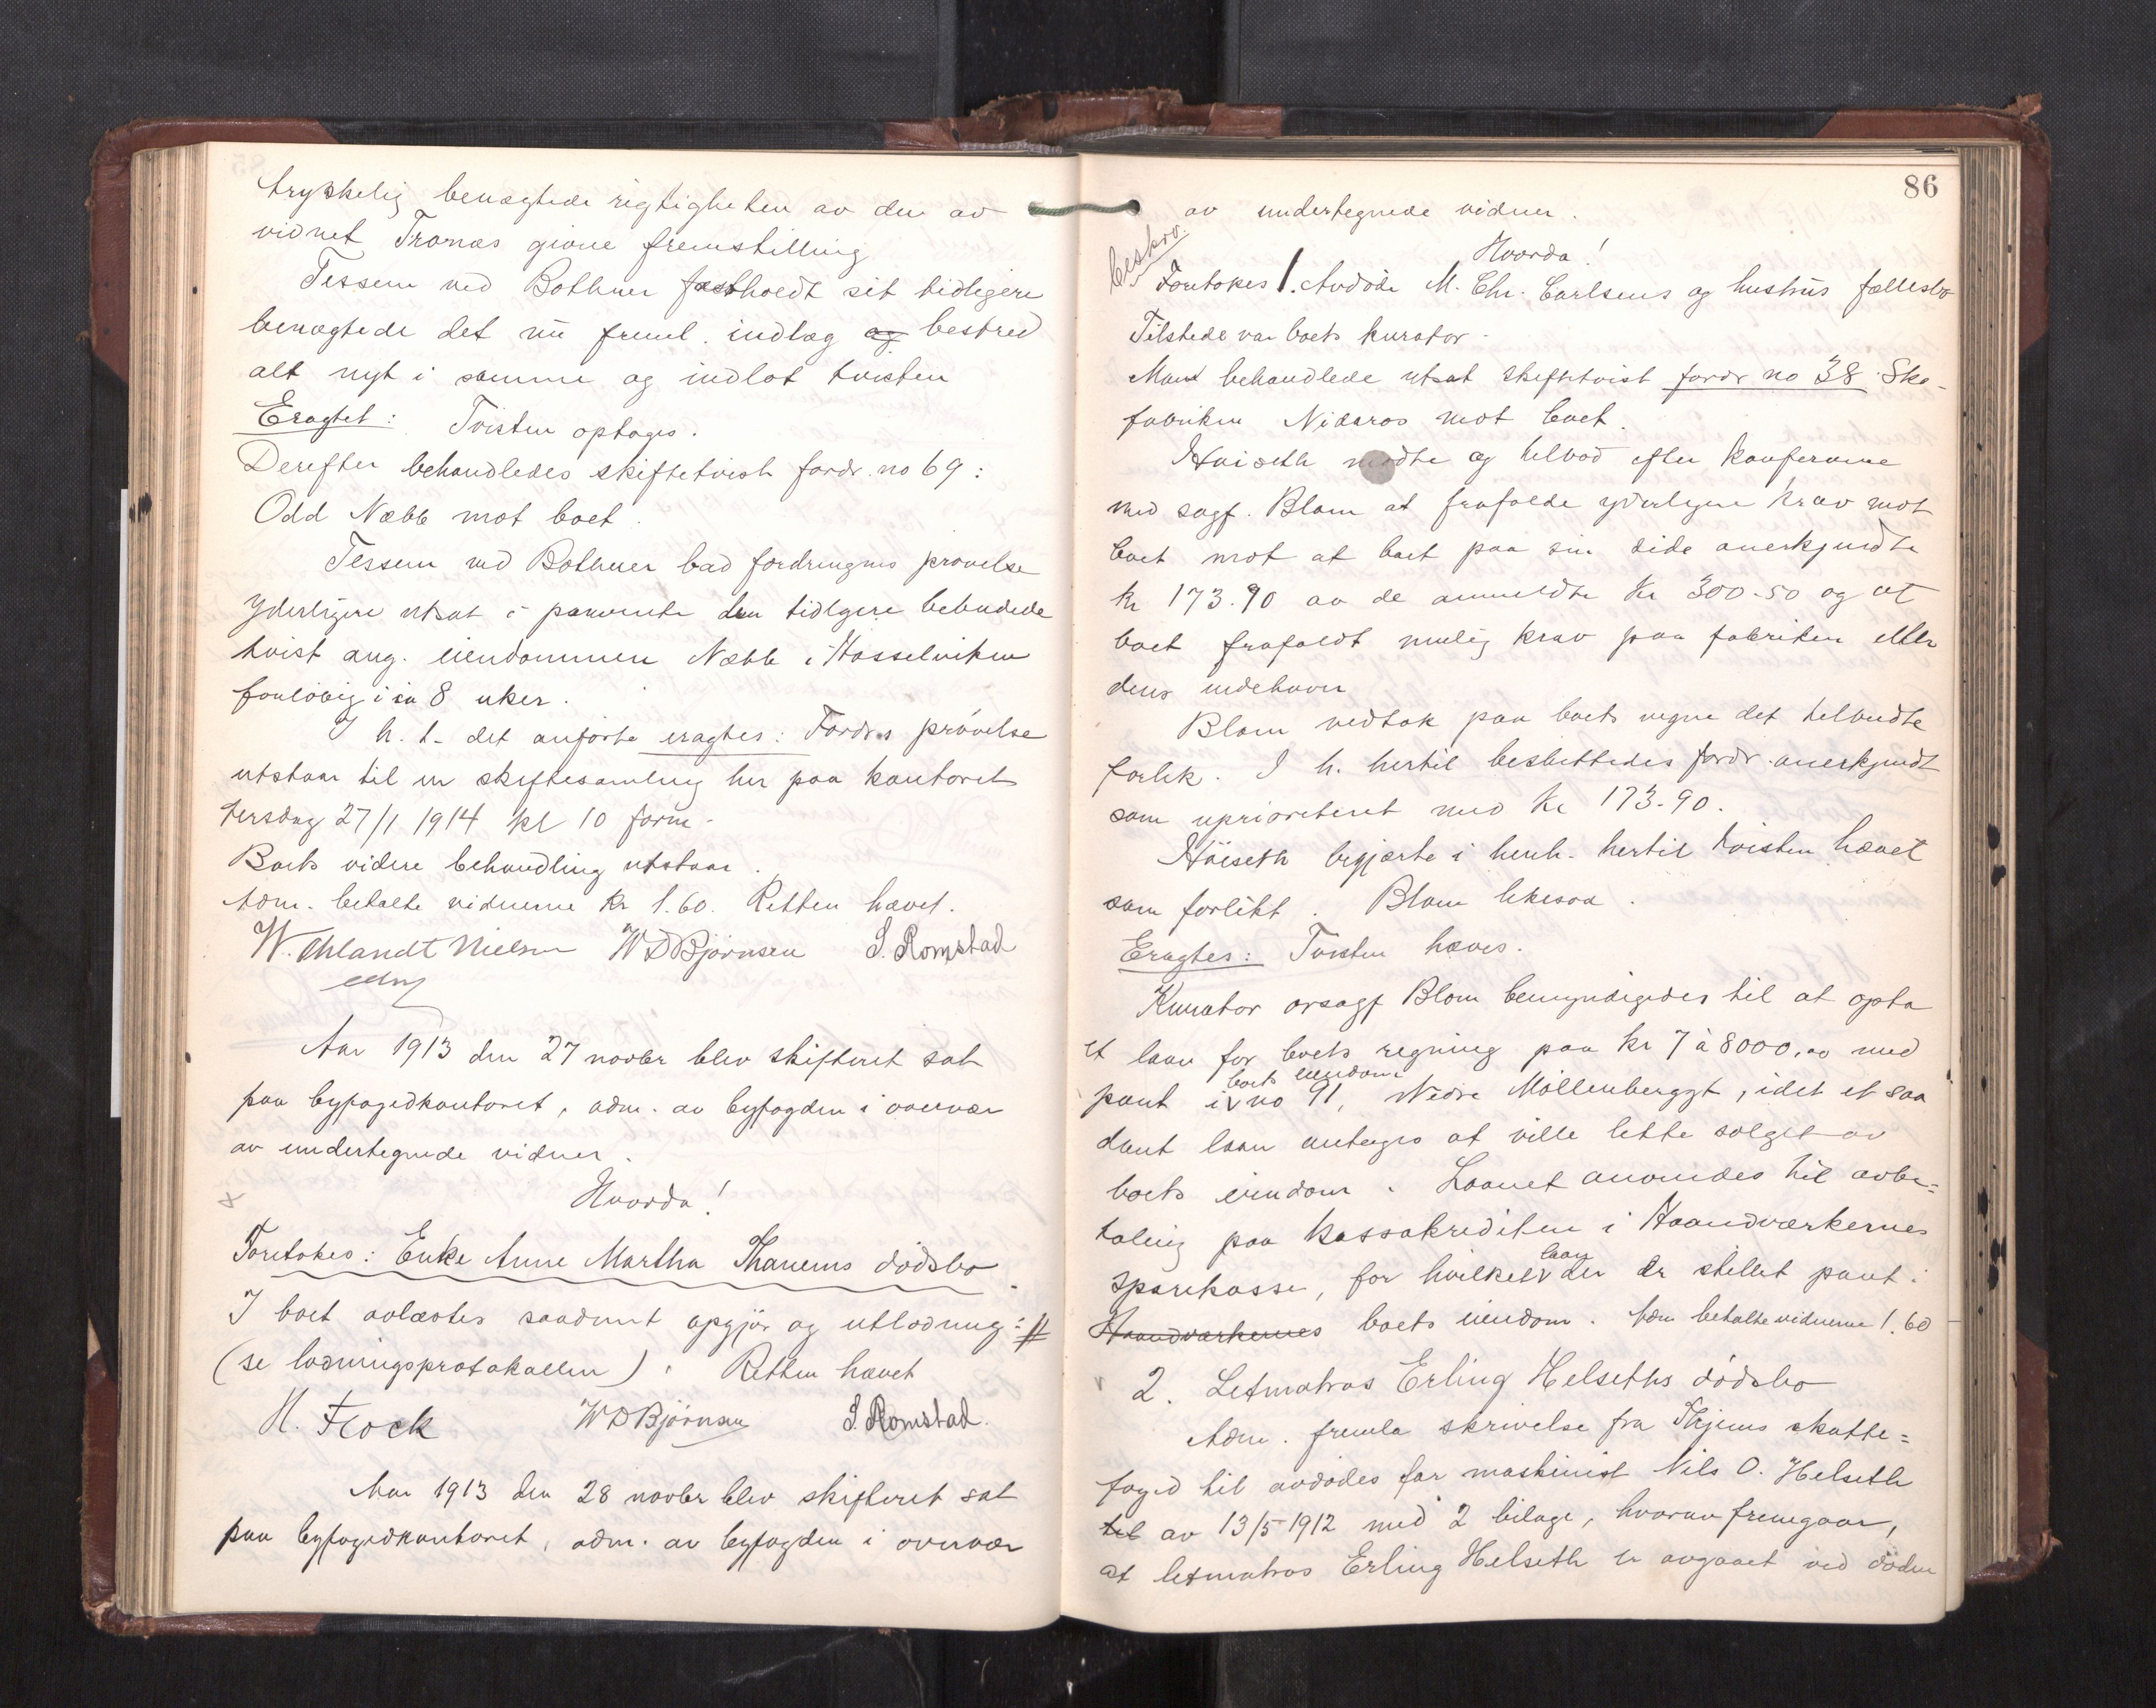 trykkelig benægtede rigtigheten av den av
vidnet Tranæs givne fremstilling
Tessem ved Bothner fastholdt sit tidligere
benægtede det nu freml. indlæg og bestred
alt nyt i samme og indlot tvisten
Eragtet: Tvisten optages.
Derefter behandledes skiftetvist fordr. no 69:
Odd Næbb mot boet.
Tessem ved Bothner bad fordringens prøvelse
yderligere utsat i paavente den tidligere bebudede
tvist ang. eiendommen Næbb i Hasselviken
foreløbig i ca 8 uker.
I h. t. det anførte eragtes: Fordr.s prøvelse
utstaar til en skiftesamling her paa kontoret
tirsdag 27/1 1914 kl 10 form.
Boets videre behandling utstaar.
Adm. betalte vidnerne kr 1.60. Retten hævet.
W. Uhlandt Nielsen WDBjörnsen S. Romstad
edsv
Aar 1913 den 27 novbr blev skifteret sat
paa byfogedkontoret, adm. av byfogden i overvær
av undertegnede vidner.
Hvorda!
Foretokes: Enke Anne Martha Thanems dödsbo
I boet avlæstes saadant opgjör og utlodning: #
(se lodningsprotokollen). Retten hævet
H. Flock WDBjörnsen S. Romstad.
Aar 1913 den 28 novbr blev skifteret sat
paa byfogedkontoret, adm. av byfogden i overvær
86
av undertegnede vidner.
Hvorda!
beskrv.
Foretokes 1. Avdöde M. Chr. Carlsens og hustrus fællesbo
Tilstede var boets kurator.
Man behandlede utsat skiftetvist fordr no 38. Sko-
fabriken Nidaros mot boet.
Høiseth mødte og tilbød efter konferanse
med sagf. Blom at frafalde yderligere krav mot
boet mot at boet paa sin side anerkjendte
kr 173.90 av de anmeldte kr 300.50 og at
boet frafaldt mulig krav paa fabriken eller
dens indehaver
Blom vedtok paa boets vegne det tilbudte
forlik. I h. hertil besluttedes fordr. anerkjendt
som uprioritert med kr 173.90.
Høiseth begjærte i henh. hertil tvisten hævet
som forlikt. Blom likesaa.
Eragtes: Tvisten hæves.
Kurator orsagf Blom bemyndigedes til at opta
et laan for boets regning paa kr 7 à 8000,00 med
pant i boets eiendom no 91, Nedre Möllenberggt, idet et saa
dant laan antages at ville lette salget av
boets eiendom. Laanet anvendes til avbe=
taling paa kassakrediten i Haandværkernes
Sparekasse, for hvilket laan der er stillet pant i
Haandværkernes boets eiendom. Adm betalte vidnerne 1.60
2. Letmatros Erling Helseths dödsbo
Adm. fremla skrivelse fra Thjems skatte=
foged til avdödes far maskinist Nils O. Helseth
til av 13/5 1912 med 2 bilage, hvorav fremgaar,
at letmatros Erling Helseth er avgaaet ved döden